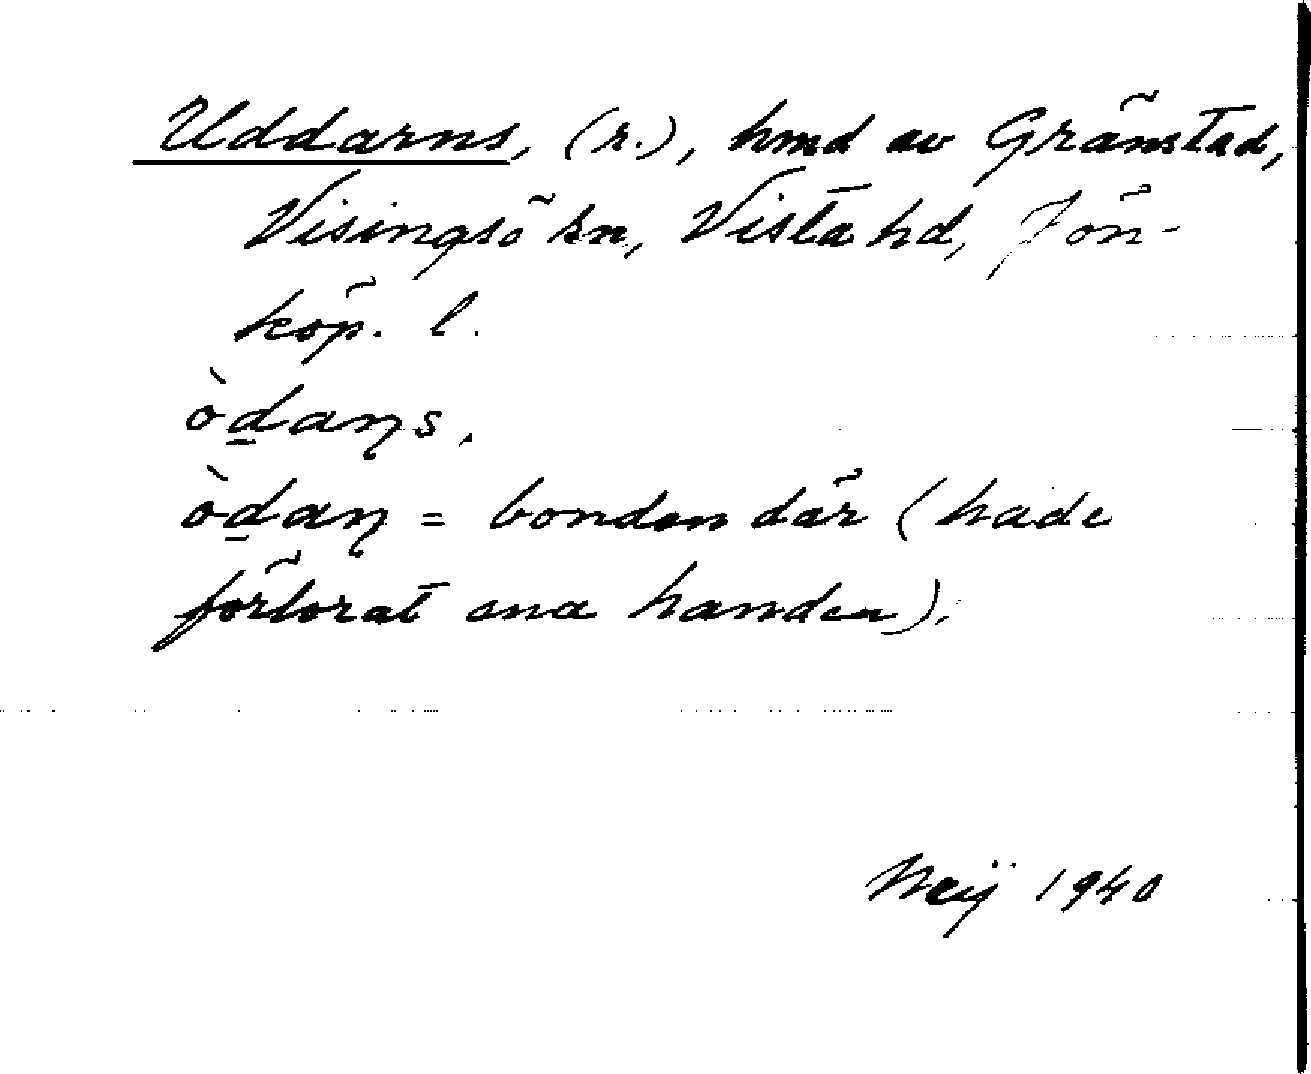 Uddarns, (r.), hmd av Gränstad,
Visingsö sn, Vista hd, Jön-
köp. l.
òd̲aŋs.
òd̲aŋ = bonden där (hade
förlorat ena handen).
1940